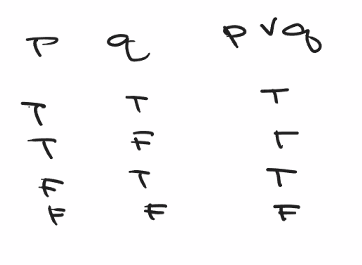 P q p∨q
T T T
T F T
F T T
F F F